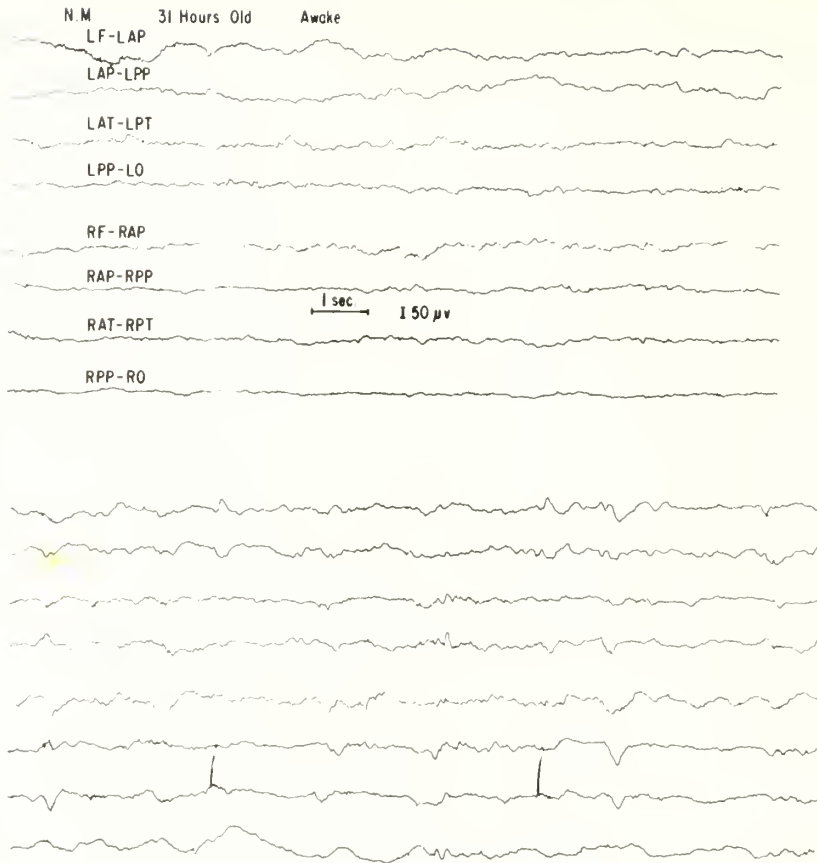 N.M 31 Hours Old Awake
LF-LAP
LAP-LPP
LAT-LPT
LPP-LO
RF-RAP
RAP-RPP
1 sec. I 50 μv
RAT-RPT
RPP-RO